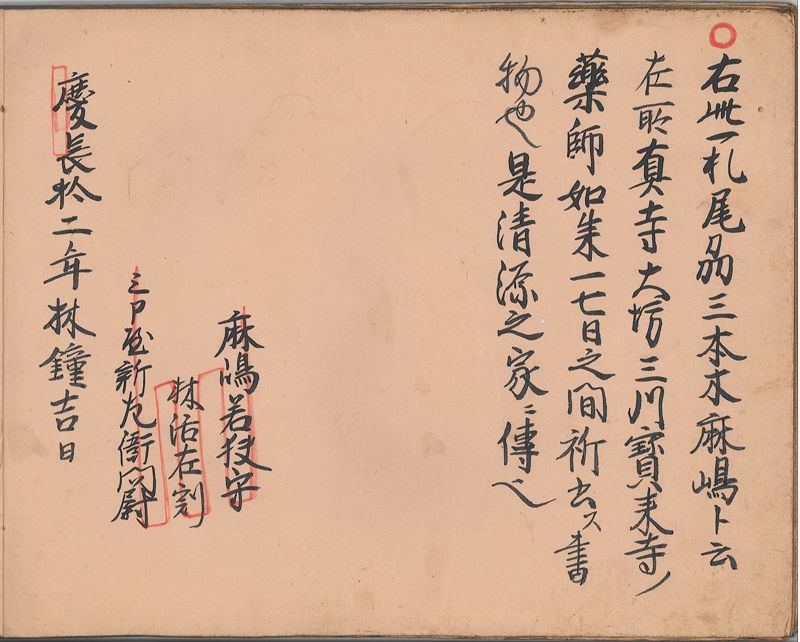 右此一札尾州三本木麻嶋ト云
在所真寺大坊三川寳来寺ノ
藥師如来一七日之間祈出ス書
物也是清源之家ニ傳也
麻嶋若狭守
林活在判
三戸屋新左衛門尉
慶長拾二年林鐘吉日